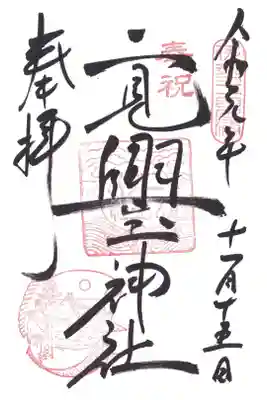 令和元年
十一月十五日
奉祝
二見興玉神社
奉拝